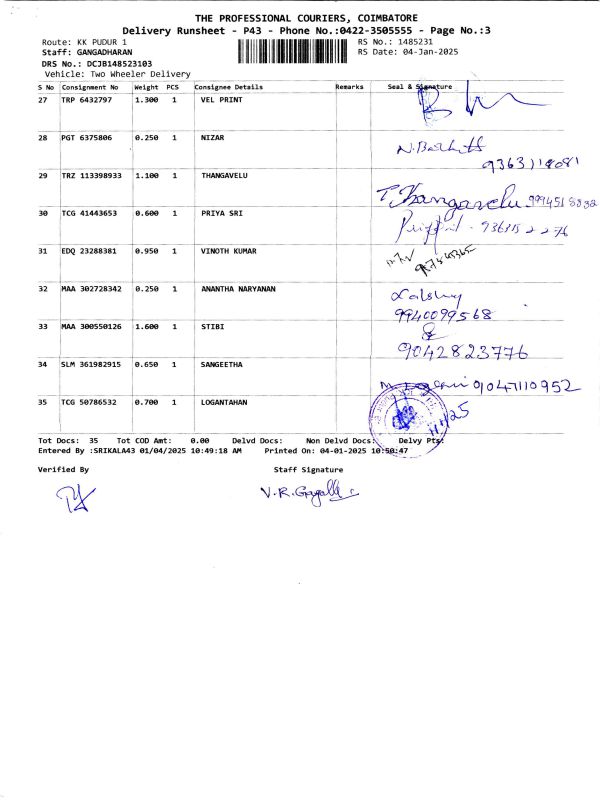 THE PROFESSIONAL COURIERS, COIMBATORE
Delivery Runsheet - P43 - Phone No.:0422-3505555 - Page No.:3
Route: KK PUDUR 1
RS No.: 1485231
Staff: GANGADHARAN
RS Date: 04-Jan-2025
DRS No.: DCJB148523103
Vehicle: Two Wheeler Delivery
S No Consignment No Weight PCS Consignee Details Remarks Seal & Signature
27 TRP 6432797 1.300 1 VEL PRINT
28 PGT 6375806 0.250 1 NIZAR
29 TRZ 113398933 1.100 1 THANGAVELU
T. Thangavelu
30 TCG 41443653 0.600 1 PRIYA SRI
31 EDQ 23288381 0.950 1 VINOTH KUMAR
32 MAA 302728342 0.250 1 ANANTHA NARYANAN
9940099568
33 MAA 300550126 1.600 1 STIBI
9042823776
34 SLM 361982915 0.650 1 SANGEETHA
9047110952
35 TCG 50786532 0.700 1 LOGANTAHAN
Tot Docs: 35 Tot COD Amt: 0.00 Delvd Docs: Non Delvd Docs: Delvy Pts:
Entered By :SRIKALA43 01/04/2025 10:49:18 AM Printed On: 04-01-2025 10:50:47
Verified By Staff Signature